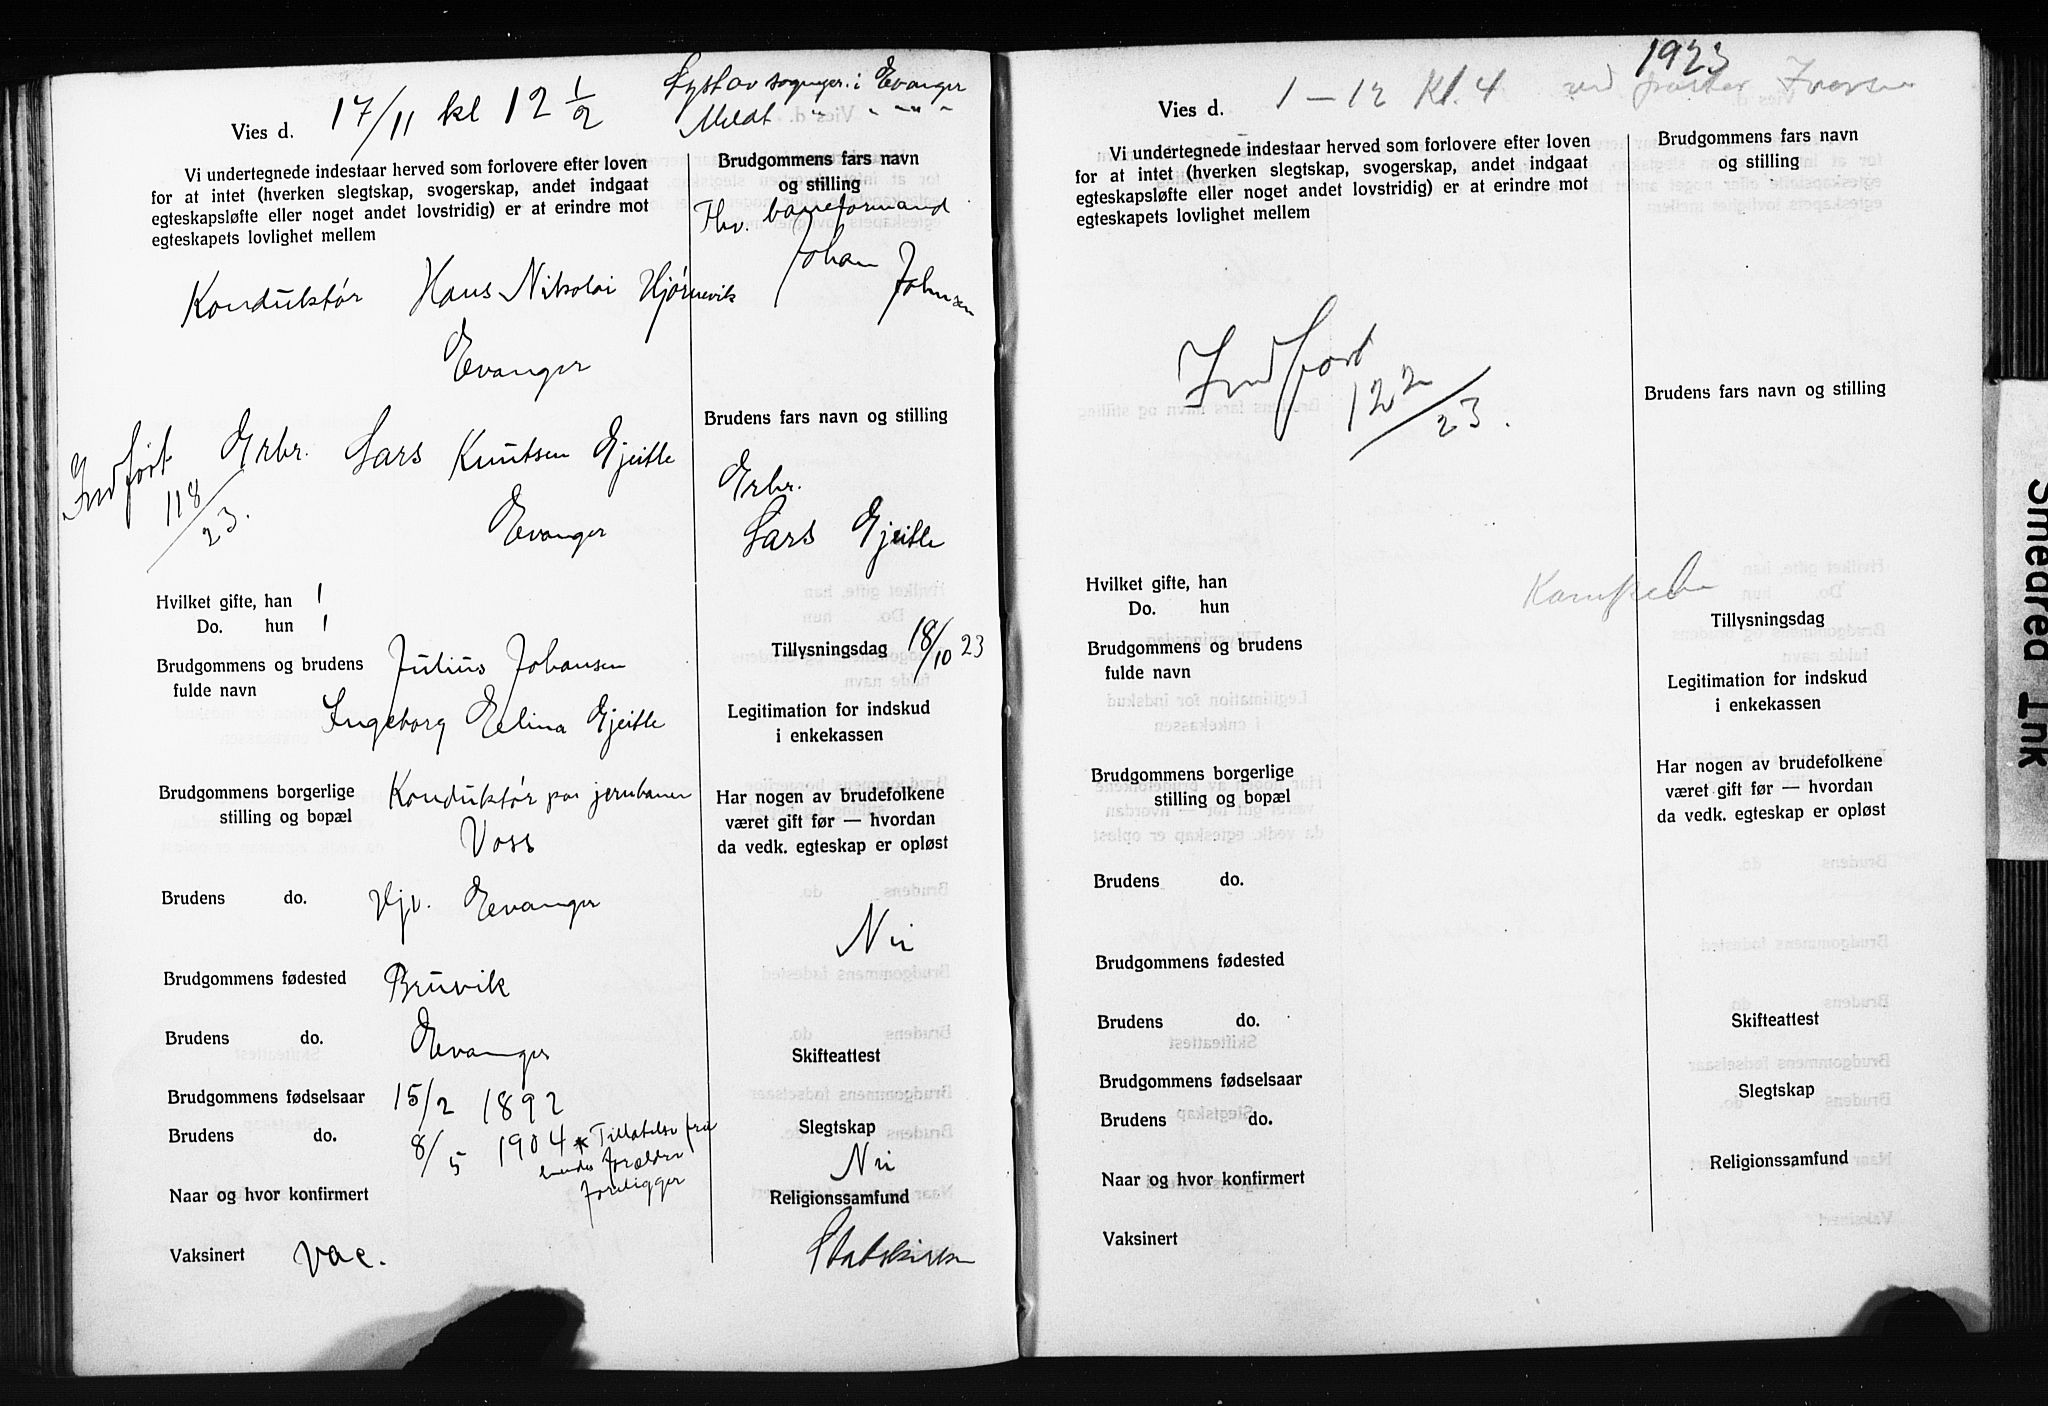 17/11 kl 12 1/2
Lyst av sogneger. i Evanger
Meldt " " " "
Vies d.
Vi undertegnede indestaar herved som forlovere efter loven
for at intet (hverken slegtskap, svogerskap, andet indgaat
egteskapsløfte eller noget andet lovstridig) er at erindre mot
egteskapets lovlighet mellem
Konduktør Hans Nikolai Hjørnevik
Evanger
Indført 118/23.
Grbr. Lars Knutsen Gjeitle
Evanger
Brudgommens fars navn
og stilling
Fhv. baneformand
Johan Johnsen
Brudens fars navn og stilling
Grbr.
Lars Gjeitle
Hvilket gifte, han 1
Do. hun 1
Brudgommens og brudens
fulde navn
Julius Johansen
Ingeborg Elina Gjeitle
Tillysningsdag 18/10 23
Legitimation for indskud
i enkekassen
Brudgommens borgerlige
stilling og bopæl
Konduktør paa jernbanen
Voss
Har nogen av brudefolkene
været gift før — hvordan
da vedk. egteskap er opløst
Nei
Brudens do. Hjv. Evanger
Brudgommens fødested Bruvik
Brudens do. Evanger
Skifteattest
Brudgommens fødselsaar 15/2 1892
Brudens do. 8/5 1904 * Tillatelse fra
hendes forældre
foreligger
Slegtskap
Nei
Naar og hvor konfirmert
Religionssamfund
Statskirken
Vaksinert vac.
1923
Vies d. 1-12 Kl. 4 ved pastor Iversen
Vi undertegnede indestaar herved som forlovere efter loven
for at intet (hverken slegtskap, svogerskap, andet indgaat
egteskapsløfte eller noget andet lovstridig) er at erindre mot
egteskapets lovlighet mellem
Brudgommens fars navn
og stilling
Indført
122/23.
Brudens fars navn og stilling
Hvilket gifte, han
Do. hun
Tillysningsdag
Brudgommens og brudens
fulde navn
Legitimation for indskud
i enkekassen
Brudgommens borgerlige
stilling og bopæl
Har nogen av brudefolkene
været gift før — hvordan
da vedk. egteskap er opløst
Brudens do.
Brudgommens fødested
Brudens do.
Skifteattest
Brudgommens fødselsaar
Brudens do.
Slegtskap
Naar og hvor konfirmert
Religionssamfund
Vaksinert
Smedred Ink